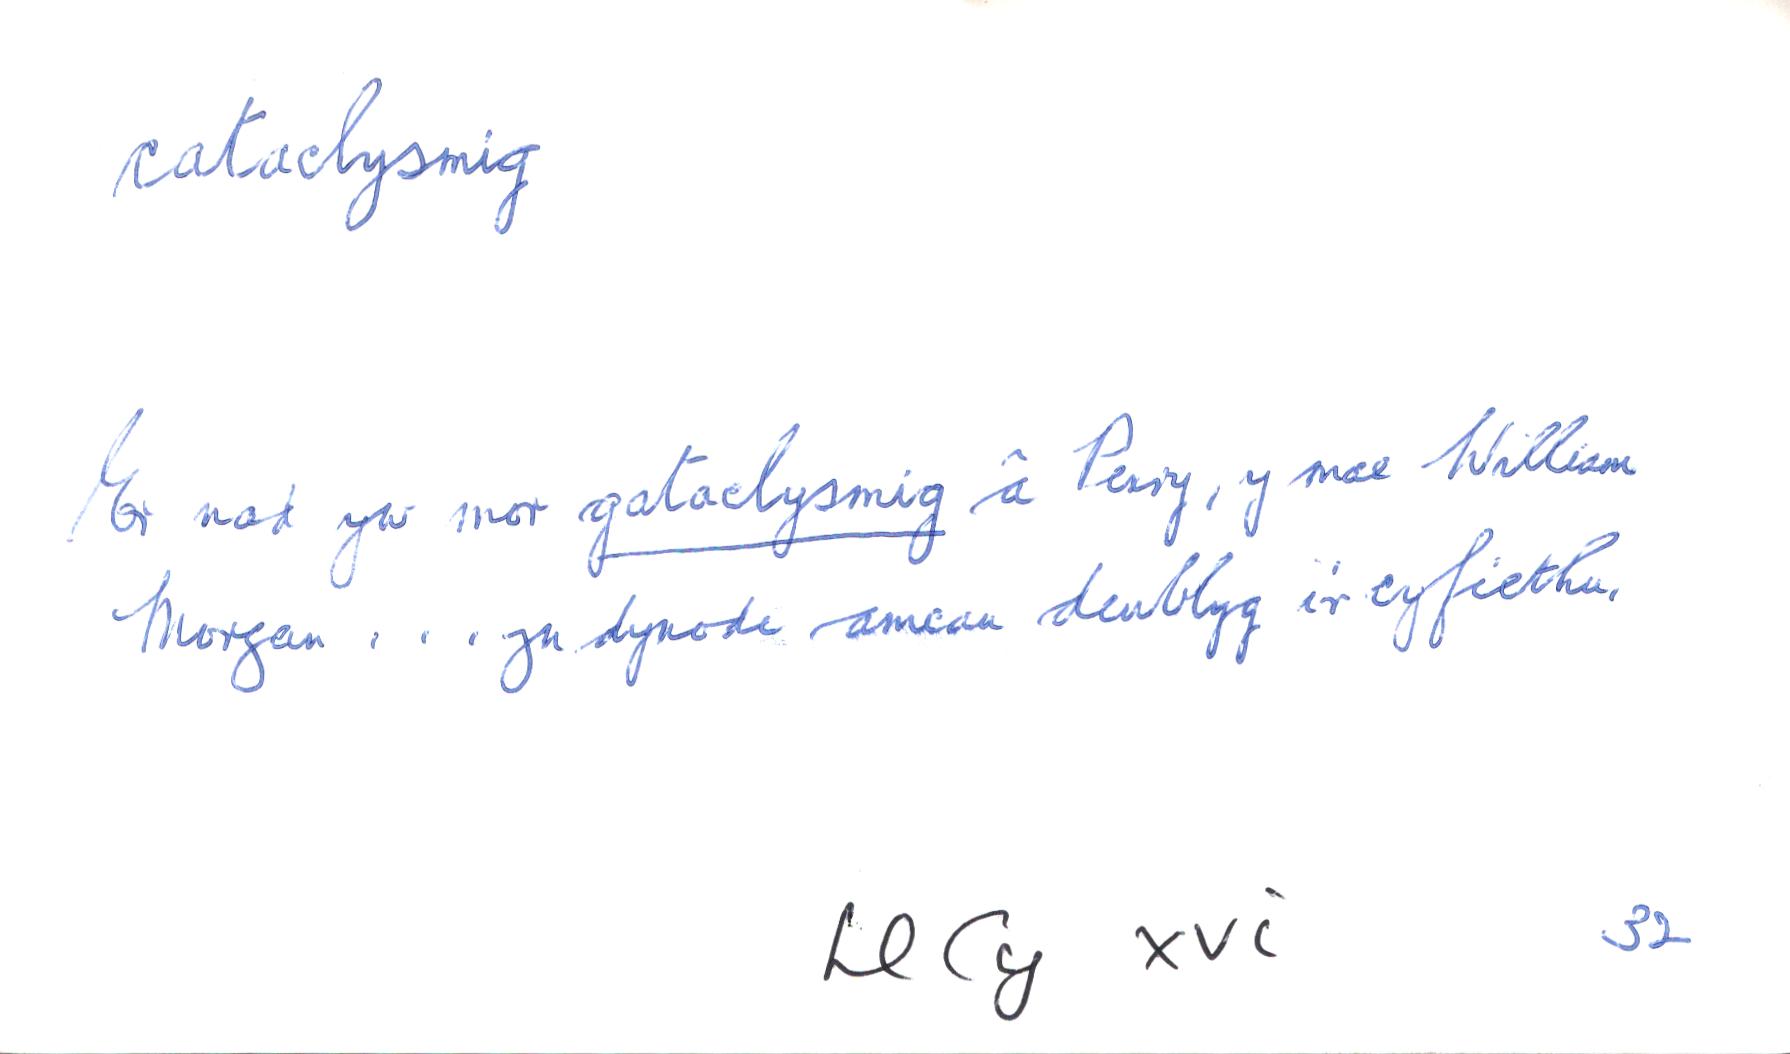 cataclysmig
Er nad yw mor gataclysmig â Penry, y mae William
Morgan . . . yn dynodi amcan deublyg i'r cyfiethu.
Ll Cy xvi 32